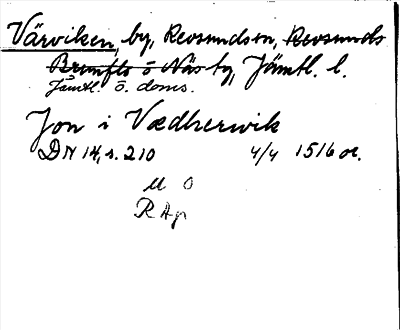 Värviken, by, Revsunds sn, Revsunds
Brunflo o Näs tg, Jämtl. l.
Jämtl. ö. doms.
Jon i Vædherwik
DN 14, s. 210 4/4 1516 or.
M O
R Ap